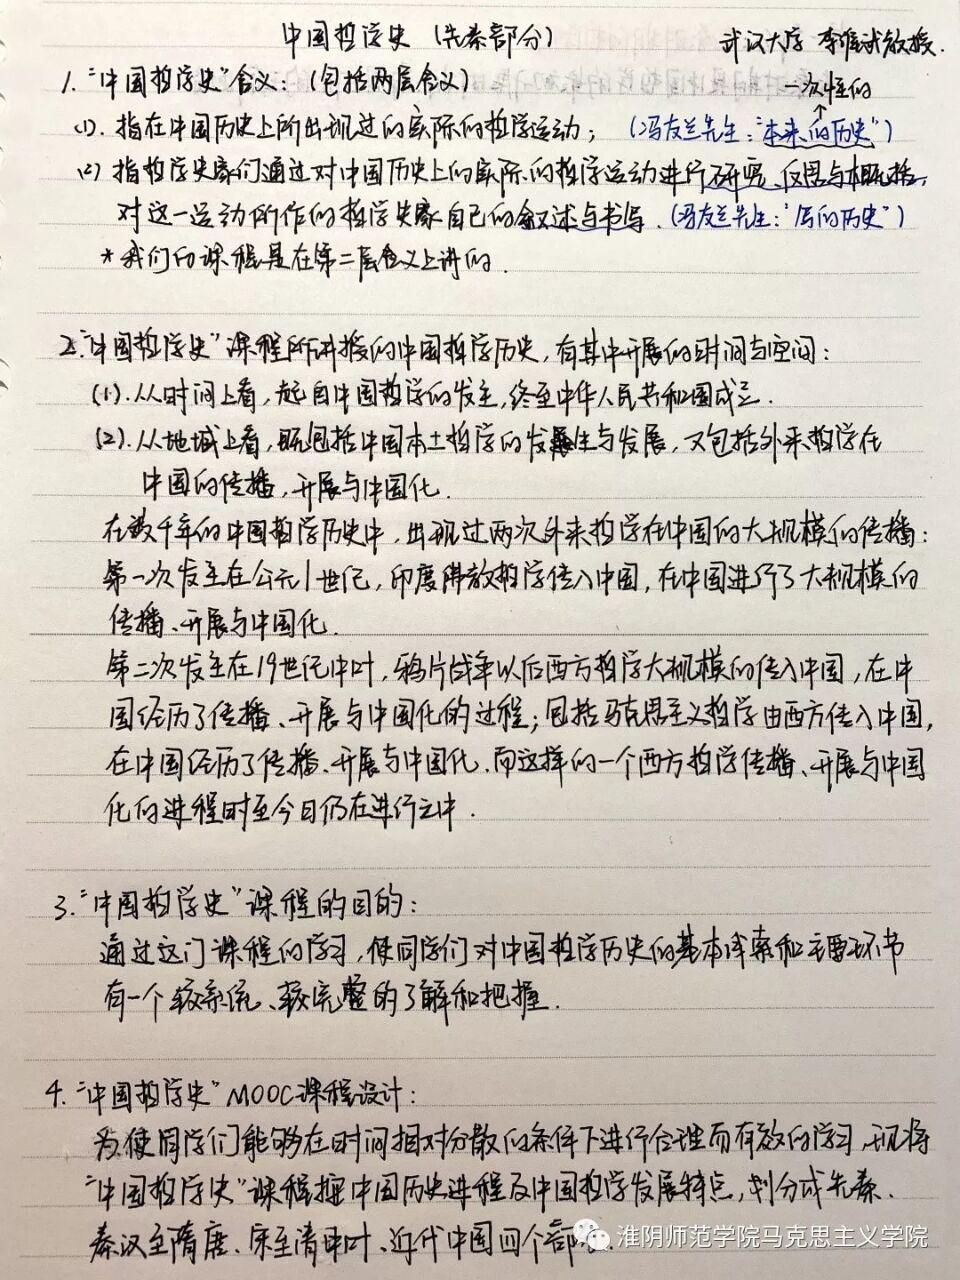 中国哲学史（先秦部分）
武汉大学 李维武教授.
1. “中国哲学史”含义：（包括两层含义）
一次性的
(1). 指在中国历史上所出现过的实际的哲学运动；（冯友兰先生：“本来的历史”）
(2) 指哲学史家们通过对中国历史上的实际的哲学运动进行研究、反思与概括，
对这一运动所作的哲学史家自己的叙述与书写.（冯友兰先生：“写的历史”）
* 我们的课程是在第二层含义上讲的.
2. “中国哲学史”课程所讲授的中国哲学历史，有其中开展的时间与空间：
(1). 从时间上看，起自中国哲学的发生，终至中华人民共和国成立.
(2). 从地域上看，既包括中国本土哲学的发生与发展，又包括外来哲学在
中国的传播，开展与中国化.
在数千年的中国哲学历史中，出现过两次外来哲学在中国的大规模的传播：
第一次发生在公元1世纪，印度佛教哲学传入中国，在中国进行了大规模的
传播、开展与中国化.
第二次发生在19世纪中叶，鸦片战争以后西方哲学大规模的传入中国，在中
国经历了传播、开展与中国化的过程；包括马克思主义哲学由西方传入中国，
在中国经历了传播、开展与中国化.而这样的一个西方哲学传播、开展与中国
化的进程时至今日仍在进行之中.
3. “中国哲学史”课程的目的：
通过这门课程的学习，使同学们对中国哲学历史的基本线索和主要环节
有一个较系统、较完整的了解和把握.
4. “中国哲学史”MOOC课程设计：
为使同学们能够在时间相对分散的条件下进行合理而有效的学习，现将
“中国哲学史”课程据中国历史进程及中国哲学发展特点，划分成先秦、
秦汉至隋唐、宋至清中叶、近代中国四个部分.
淮阴师范学院马克思主义学院